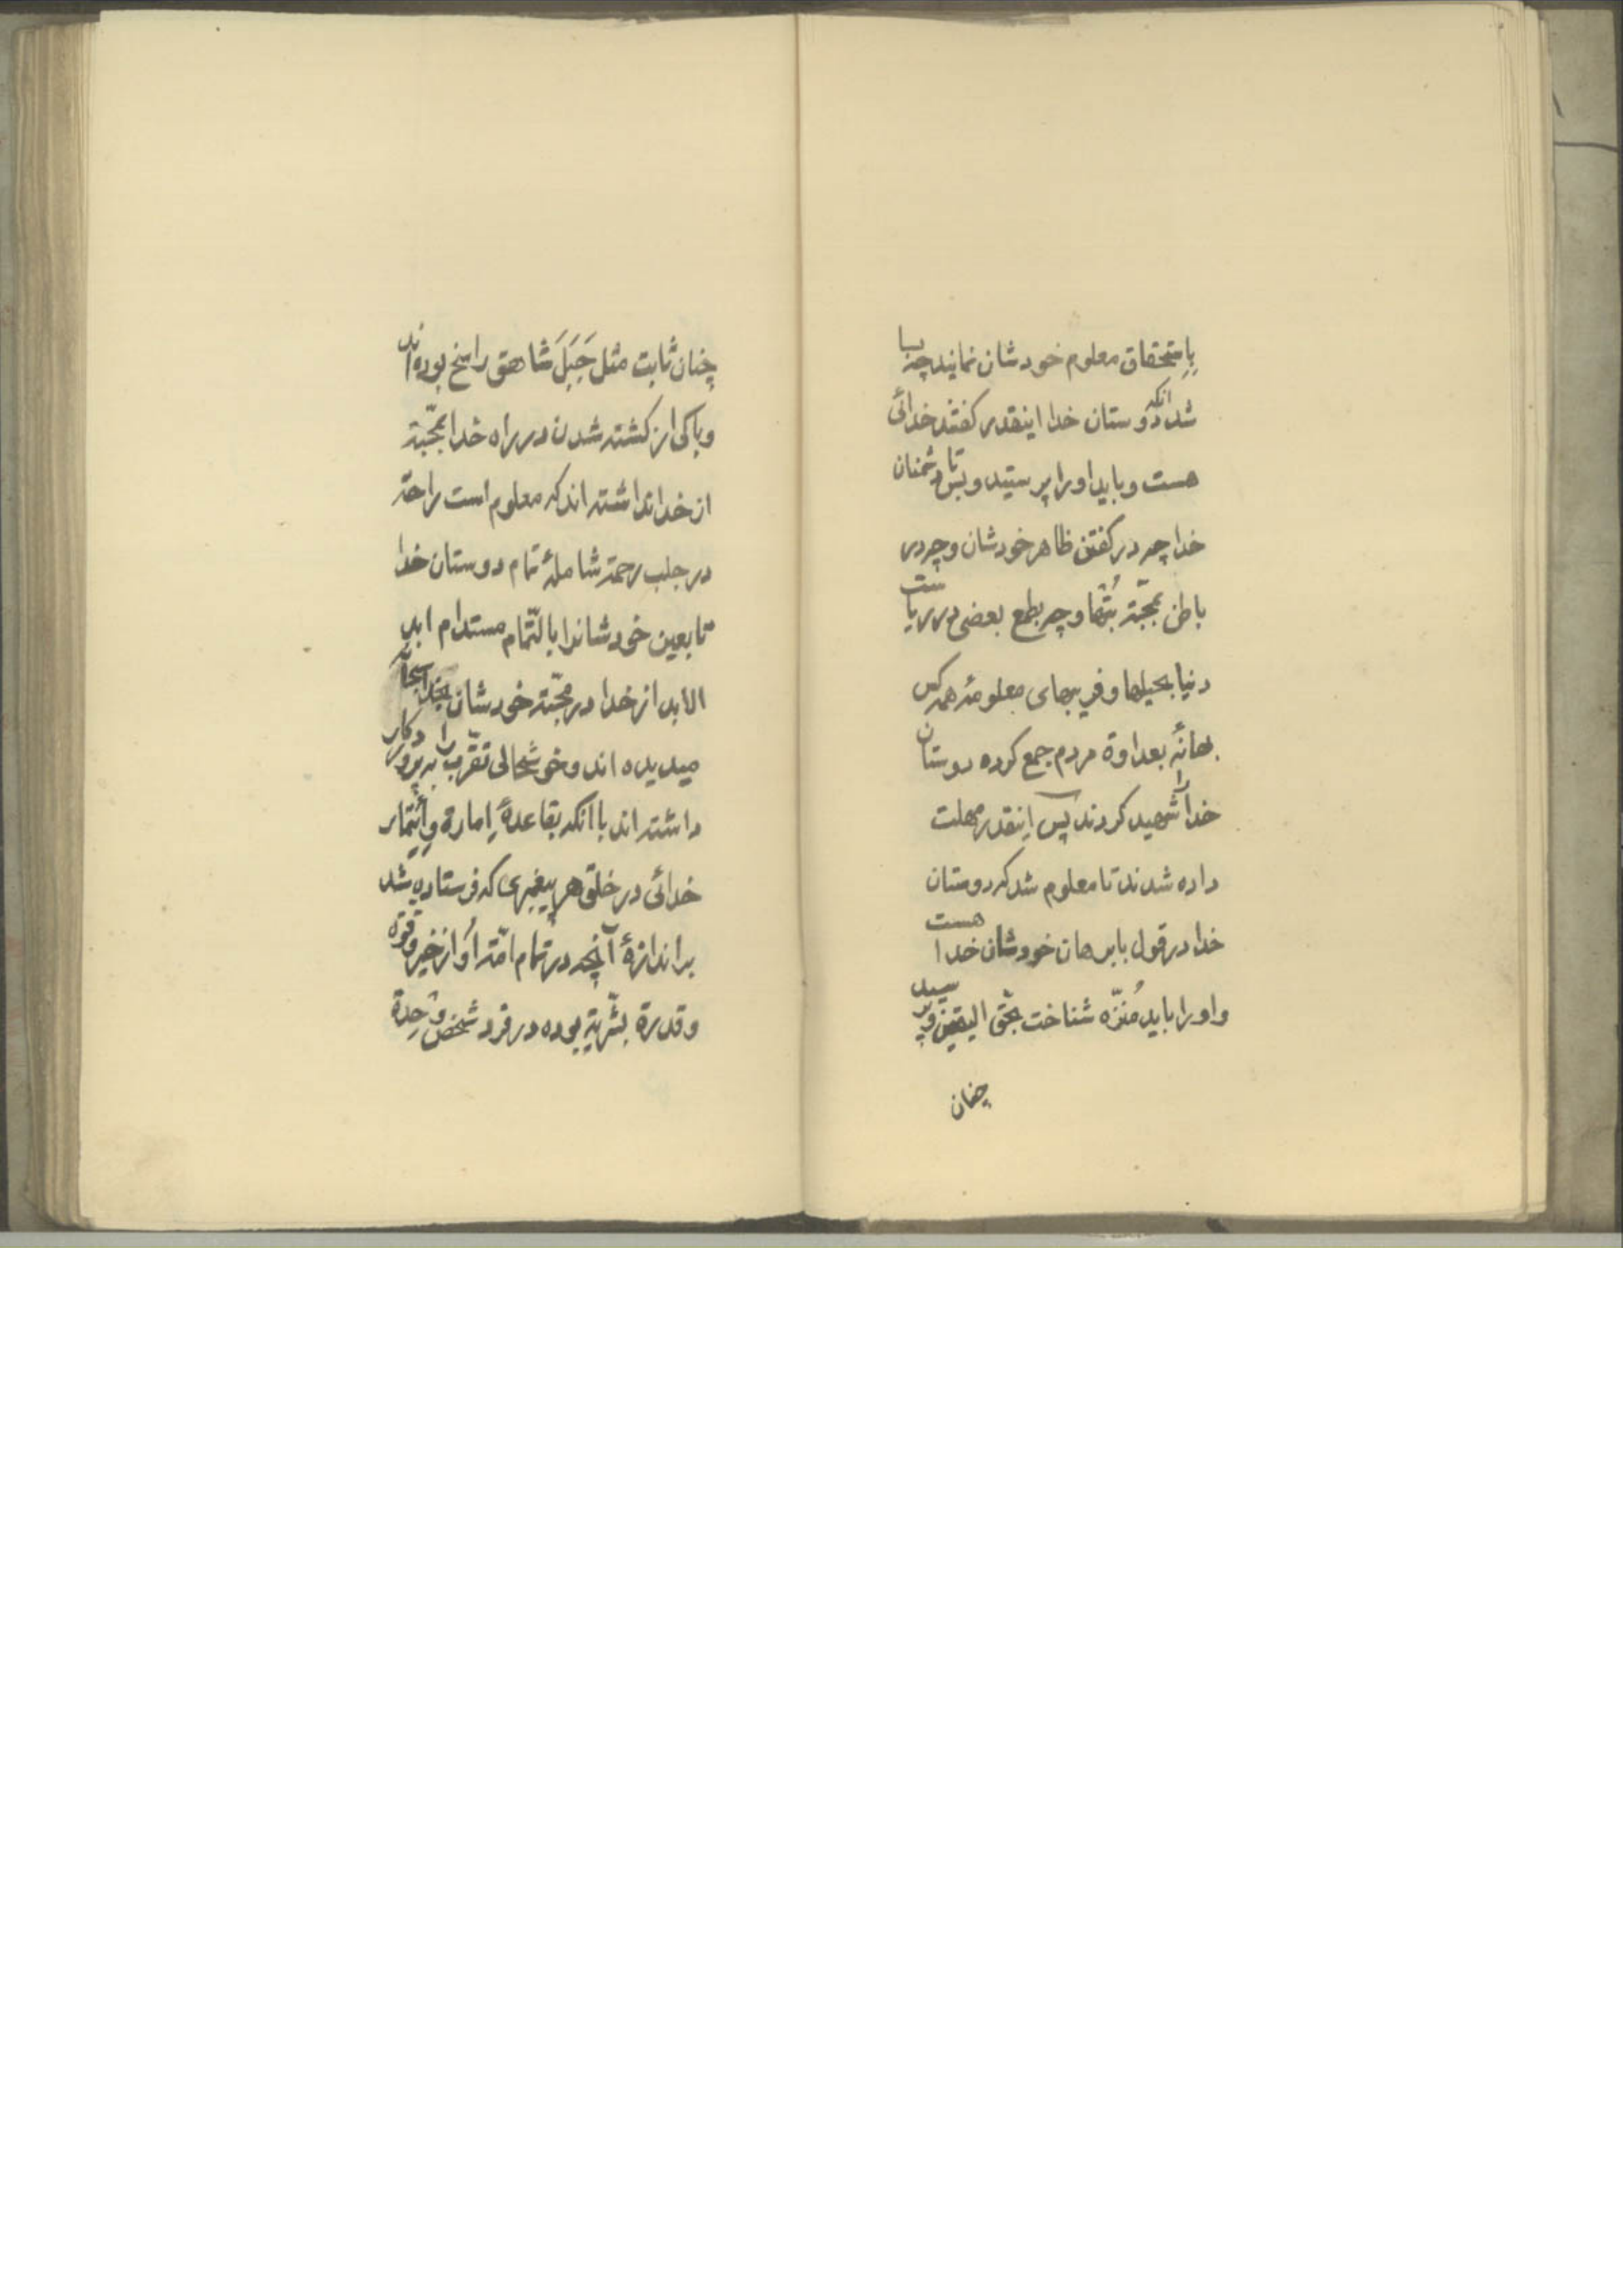 باِستحقاق معلوم خودشان نمایند چه بسا
شد انکه دوستان خدا اینقدر کفتند خدائی
هست و باید او را پرستید و بس تا دشمنان
خدا چه در کفتن ظاهر خودشان و چه در
باطن بمحبّة بُتها و چه بطمع بعضی در ریاست
دنیا بحیلها و فریبهای معلومهٔ همه کس
بهانهٔ بعداوة مردم جمع کرده دوستان
خدا را شهید کردند پس اِینقدر مهلت
داده شدند تا معلوم شد که دوستان
خدا در قول با برهان خودشان خدا هست
و او را باید مُنزّه شناخت بحقّ الیقین و پرستید
چنان
چنان ثابت مثل جَبَلَ شاهق راسخ بوده اند
و باکی از کشته شدن در راه خدا بمحبّة
از خدا نداشته اند که معلوم است راحة
در جلب رحمة شاملهٔ تمام دوستان خدا
تابعین خودشانرا بالتّمام مستدام ابد
الابد از خدا در محبّة خودشان بخدا
میدیده اند و خوشحالی تقرّب را به پروردکار
داشته اند با انکه بقاعدهٔ اِمارة و اِئتمار
خدائی در خلق هر پیغمبری که فرستاده شد
بر اندازهٔ آنچه در تمام امّة اُو از خیر و قوّه
و قدرة بشّریّة بوده در فرد شخص وٰحدة